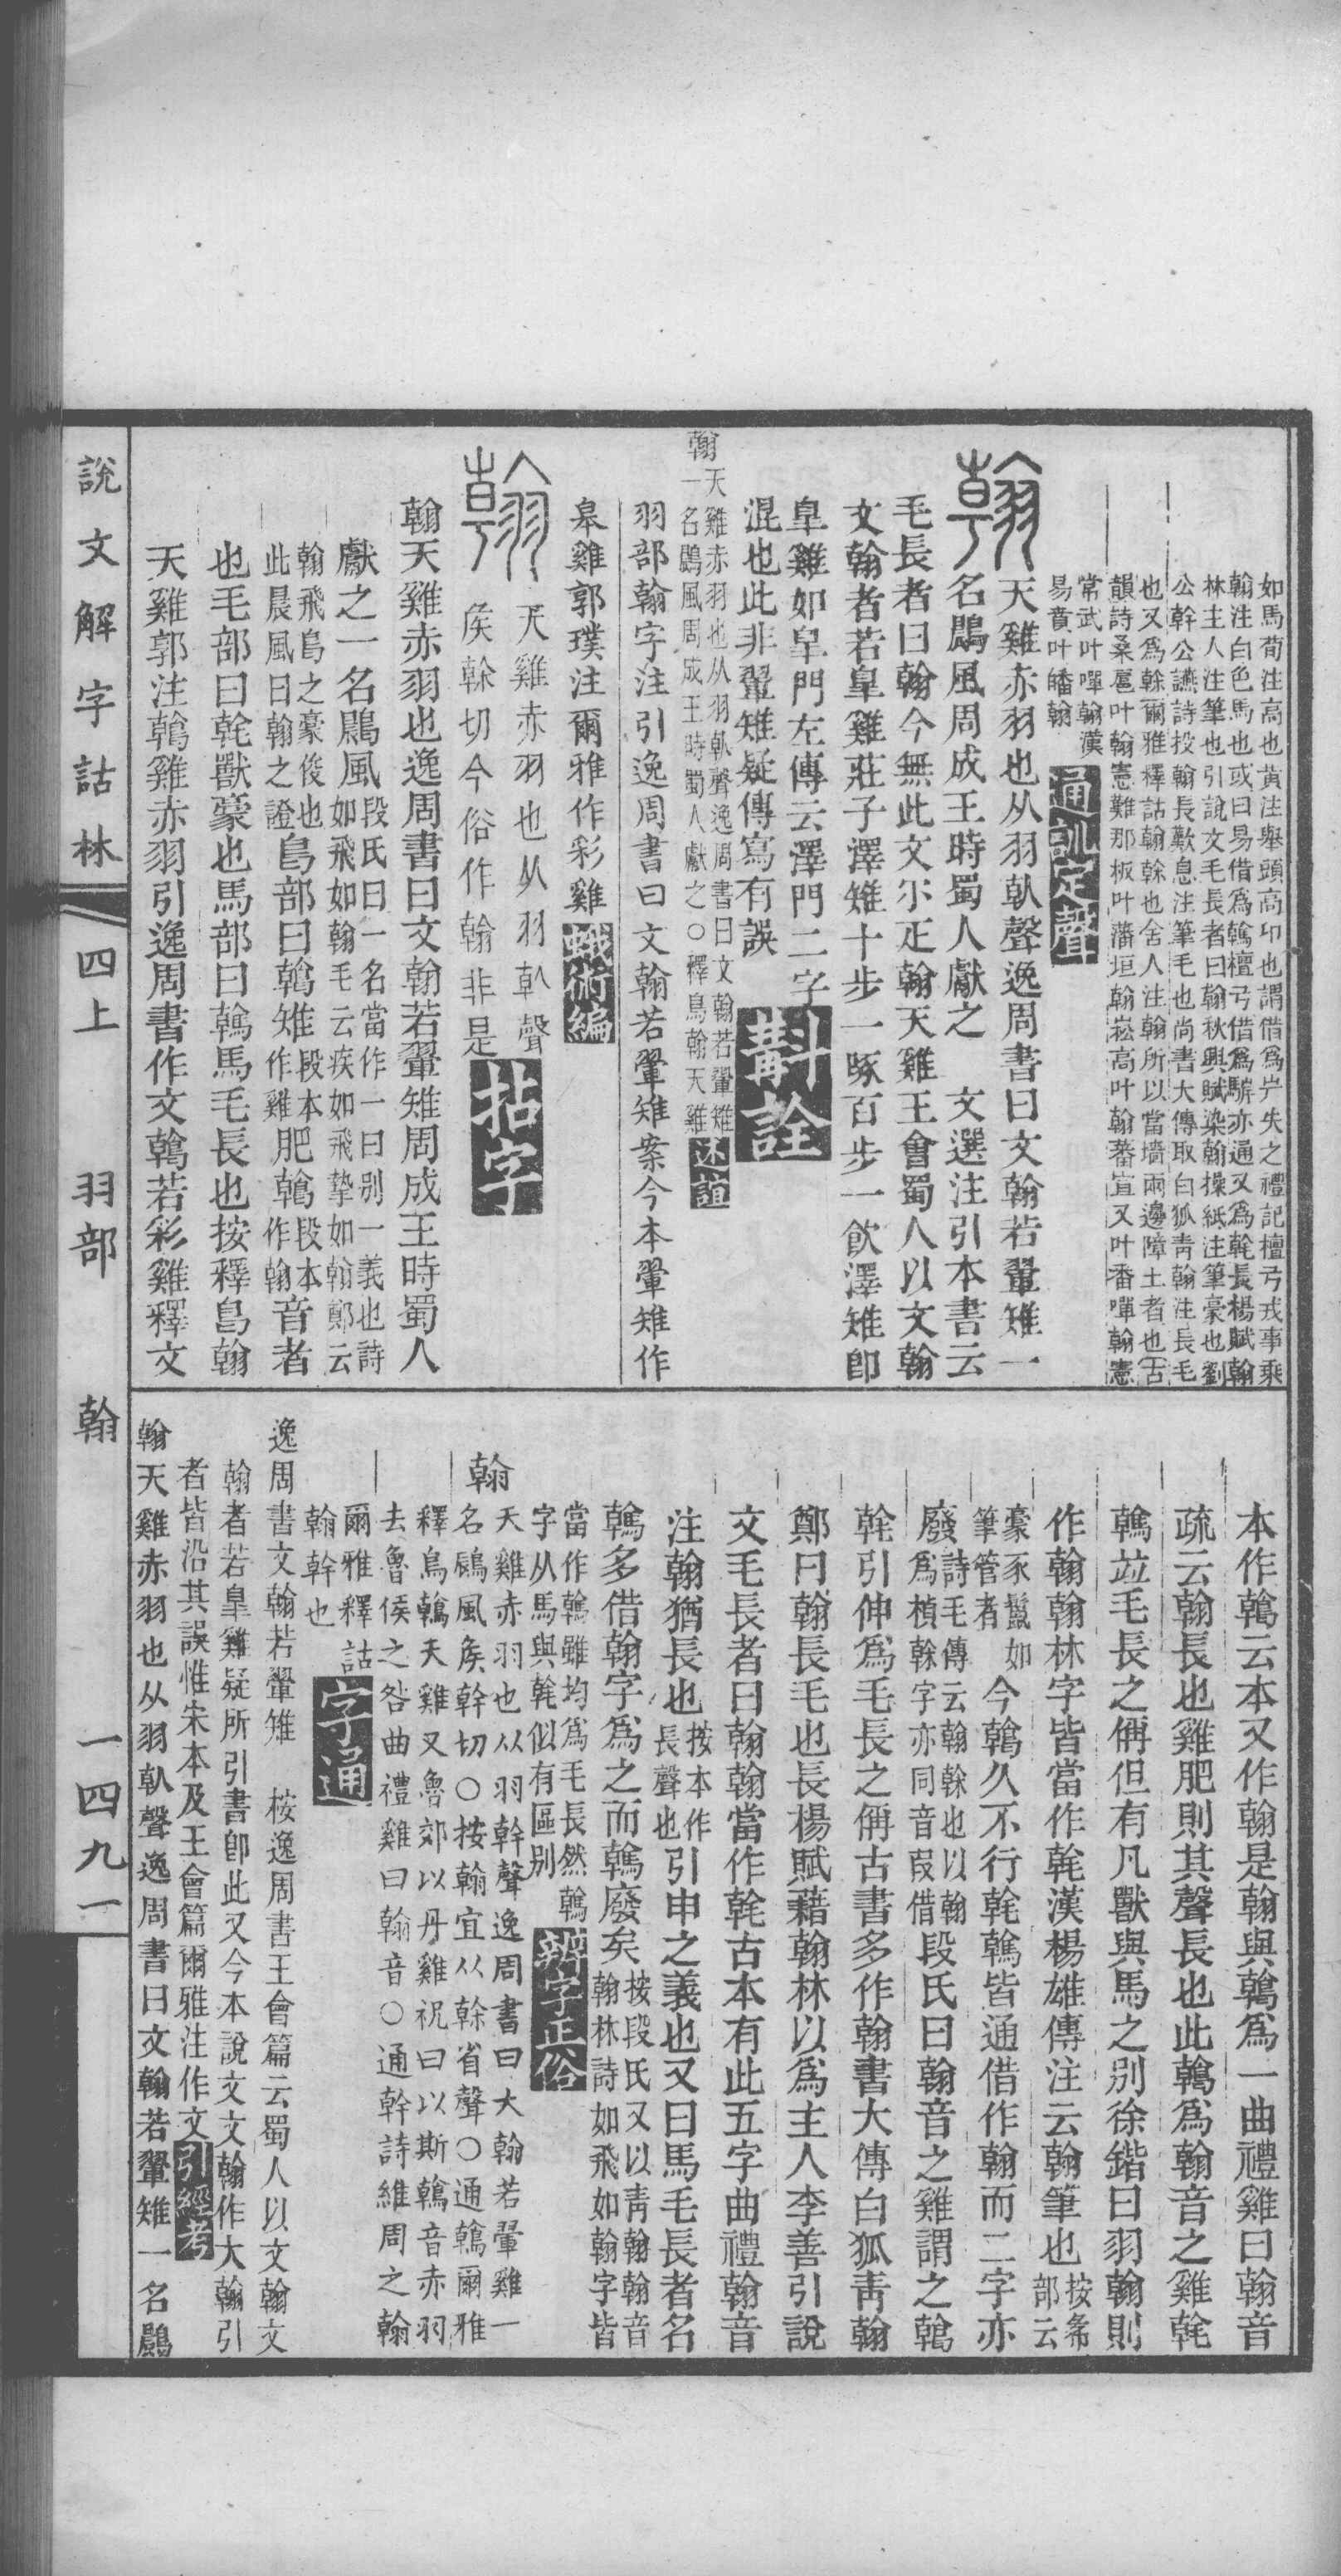 如馬荀注高也黃注舉頭高卬也謂借爲屵失之禮記檀弓戎事乘
翰注白色馬也或曰易借爲鶾檀弓借爲騂亦通又爲乾長楊賦翰
林主人注筆也引說文毛長者曰翰秋興賦染翰操紙注筆豪也劉
公幹公讌詩投翰長歎息注筆毛也尚書大傳取白狐青翰注長毛
也又爲榦爾雅釋詁翰榦也舍人注翰所以當墻兩邊障土者也古
韻詩桑扈叶翰憲難那板叶藩垣翰崧高叶翰蕃宣又叶番嘽翰憲
常武叶嘽翰漢
易賁叶皤翰
通訓定聲
翰
天雞赤羽也从羽倝聲逸周書曰文翰若翬雉一
名鷐風周成王時蜀人獻之　文選注引本書云
毛長者曰翰今無此文尒疋翰天雞王會蜀人以文翰
文翰者若皐雞莊子澤雉十步一啄百步一飲澤雉卽
皐雞如皐門左傳云澤門二字
混也此非翬雉疑傳寫有誤
斠詮
翰天雞赤羽也从羽倝聲逸周書曰文翰若翬雉
一名鷐風周成王時蜀人獻之○釋鳥翰天雞
述誼
羽部翰字注引逸周書曰文翰若翬雉案今本翬雉作
皋雞郭璞注爾雅作彩雞
蛾術編
翰
天雞赤羽也从羽倝聲
矦榦切今俗作翰非是
拈字
翰天雞赤羽也逸周書曰文翰若翬雉周成王時蜀人
獻之一名鷐風段氏曰一名當作一曰别一義也詩
如飛如翰毛云疾如飛摯如翰鄭云
翰飛鳥之豪俊也
此晨風曰翰之證
鳥部曰鶾雉段本
作雞
肥鶾段本
作翰
音者
也毛部曰乾獸豪也馬部曰鶾馬毛長也按釋鳥翰
天雞郭注鶾雞赤羽引逸周書作文鶾若彩雞釋文
本作鶾云本又作翰是翰與鶾爲一曲禮雞曰翰音
疏云翰長也雞肥則其聲長也此鶾爲翰音之雞乾
鶾竝毛長之偁但有凡獸與馬之别徐鍇曰羽翰則
作翰翰林字皆當作乾漢楊雄傳注云翰筆也按㣇
部云
豪豕鬣如
筆管者
今鶾久不行乾鶾皆通借作翰而二字亦
廢詩毛傳云翰榦也以翰
爲楨榦字亦同音叚借
段氏曰翰音之雞謂之鶾
乾引伸爲毛長之偁古書多作翰書大傳白狐青翰
鄭曰翰長毛也長楊賦藉翰林以爲主人李善引說
文毛長者曰翰翰當作乾古本有此五字曲禮翰音
注翰猶長也按本作
長聲也
引申之義也又曰馬毛長者名
鶾多借翰字爲之而鶾廢矣按段氏又以青翰翰音
翰林詩如飛如翰字皆
當作鶾雖均爲毛長然鶾
字从馬與乾似有區别
辨字正俗
翰
天雞赤羽也从羽幹聲逸周書曰大翰若翬雞一
名鷐風矦幹切○按翰宜从榦省聲○通鶾爾雅
釋鳥鶾天雞又魯郊以丹雞祝曰以斯鶾音赤羽
去魯侯之咎曲禮雞曰翰音○通幹詩維周之翰
爾雅釋詁
翰幹也
字通
逸周書文翰若翬雉　桉逸周書王會篇云蜀人以文翰文
翰者若皐雞疑所引書卽此又今本說文文翰作大翰引
者皆沿其誤惟宋本及王會篇爾雅注作文
引經考
翰天雞赤羽也从羽倝聲逸周書曰文翰若翬雉一名鷐
說文解字詁林
四上　羽部　翰
一四九一